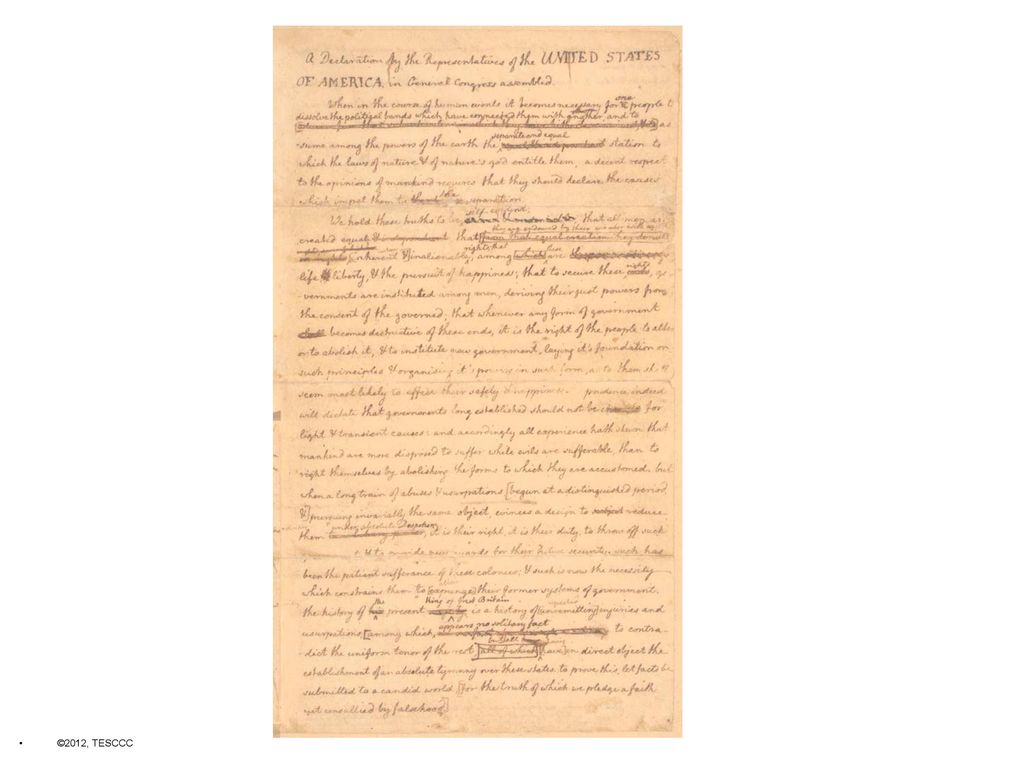 A Declaration by the Representatives of the UNITED STATES
OF AMERICA, in General Congress assembled.
When in the course of human events it becomes necessary for one people to
dissolve the political bands which have connected them with another, and to
as-
separate and equal
sume among the powers of the earth the station to
which the laws of nature & of nature's god entitle them, a decent respect
to the opinions of mankind requires that they should declare the causes
which impel them to the separation.
self-evident,
We hold these truths to be that all men are
they are endowed by their creator with
created equal & independent that from that equal creation they derive
rights; that these
inherent & inalienable among which are
life & liberty, & the pursuit of happiness; that to secure these rights, go-
vernments are instituted among men, deriving their just powers from
the consent of the governed; that whenever any form of government
becomes destructive of these ends, it is the right of the people to alter
or to abolish it, & to institute new government, laying it's foundation on
such principles & organising it's powers in such form, as to them shall
seem most likely to effect their safety & happiness. prudence indeed
will dictate that governments long established should not be changed for
light & transient causes: and accordingly all experience hath shewn that
mankind are more disposed to suffer while evils are sufferable, than to
right themselves by abolishing the forms to which they are accustomed. but
when a long train of abuses & usurpations [begun at a distinguished period,
&] pursuing invariably the same object, evinces a design to reduce
under absolute Despotism
them it is their right, it is their duty, to throw off such
& to provide new guards for their future security. such has
been the patient sufferance of these colonies; & such is now the necessity
which constrains them to [expunge] their former systems of government.
the King of Great Britain
the history of his present is a history of [unremitting] injuries and
appears no solitary fact
usurpations, [among which, to contra-
but all
dict the uniform tenor of the rest [all of which] [have] in direct object the
establishment of an absolute tyranny over these states. to prove this, let facts be
submitted to a candid world, [for the truth of which we pledge a faith
yet unsullied by falsehood.]
• ©2012, TESCCC